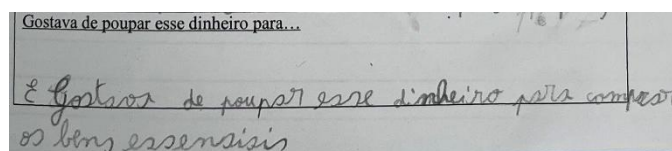 Gostava de poupar esse dinheiro para...
E Gostava de poupar esse dinheiro para comprar
os bens essensiais